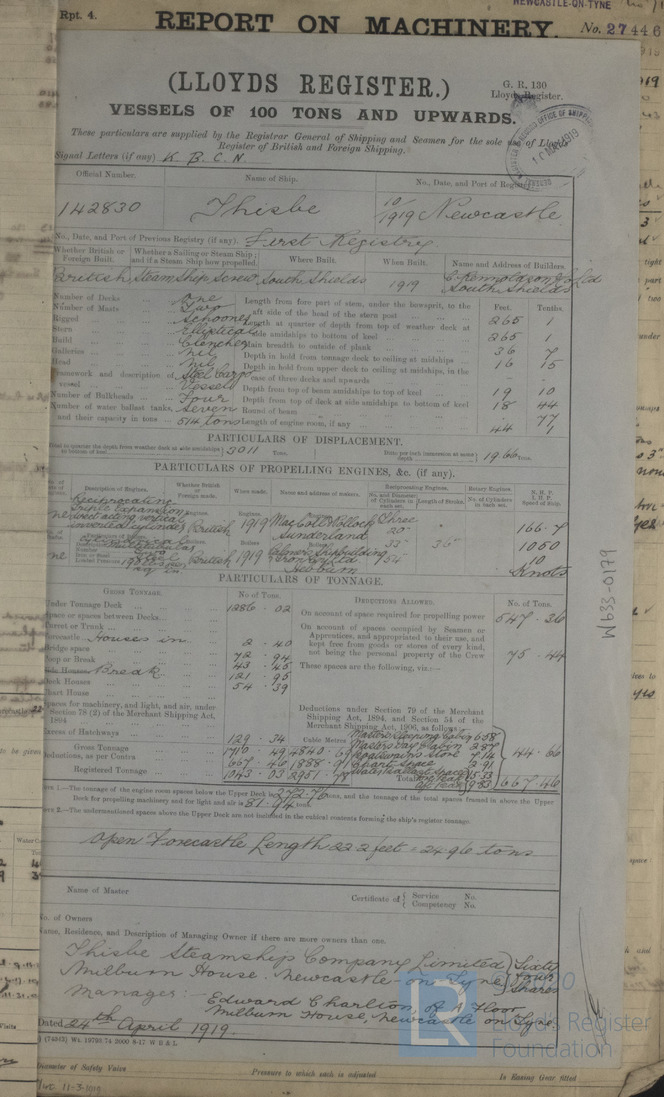 Rpt. 4.
REPORT ON MACHINERY.
NEWCASTLE-ON-TYNE
No. 27446
(LLOYDS REGISTER.)
G. R. 130
Lloyds Register.
VESSELS OF 100 TONS AND UPWARDS.
These particulars are supplied by the Registrar General of Shipping and Seamen for the sole use of Lloyds
Register of British and Foreign Shipping.
Signal Letters (if any) K B C N
Official Number.
Name of Ship.
No., Date, and Port of Registry
142830
Thisbe
10/1919 Newcastle
No., Date, and Port of Previous Registry (if any). First Registry
Whether British or Foreign Built.
Whether a Sailing or Steam Ship; and if a Steam Ship how propelled.
Where Built.
When Built.
Name and Address of Builders
British Steam Ship Screw South Shields 1919
South Shields
Number of Decks One
Number of Masts Two
Rigged Schooner
Stern Elliptical
Build Clencher
Galleries nil
Head nil
Framework and description of vessel Steel Cargo Vessel
Number of Bulkheads Four
Number of water ballast tanks, and their capacity in tons Seven 514 tons
Feet. Tenths.
Length from fore part of stem, under the bowsprit, to the aft side of the head of the stern post 265 1
Length at quarter of depth from top of weather deck at side amidships to bottom of keel 265 1
Main breadth to outside of plank 36 7
Depth in hold from tonnage deck to ceiling at midships 16 15
Depth in hold from upper deck to ceiling at midships, in the case of three decks and upwards
Depth from top of beam amidships to top of keel 19 10
Depth from top of deck at side amidships to bottom of keel 18 44
Round of beam 77
Length of engine room, if any 44 1
PARTICULARS OF DISPLACEMENT.
3011 Tons.
19.66 tons
PARTICULARS OF PROPELLING ENGINES, &c. (if any).
Description of Engines.
Whether British or Foreign made.
When made.
Name and address of makers.
Reciprocating Engines.
No. and Diameter of Cylinders in each set.
Length of Stroke.
Rotary Engines.
No. of Cylinders in each set.
N. H. P.
I. H. P.
Speed of Ship.
Reciprocating
Triple Expansion
direct acting vertical
inverted cylinder
British 1919 MacColl & Pollock
Sunderland
Three
20"
33"
54"
36"
166.7
1050
10
Knots
British 1919 Palmers Shipbuilding
& Iron Co Ltd
Hebburn
PARTICULARS OF TONNAGE.
GROSS TONNAGE.
No. of Tons.
DEDUCTIONS ALLOWED.
No. of Tons.
Under Tonnage Deck 1286.02
Space or spaces between Decks
Turret or Trunk
Forecastle Houses in 2.40
Bridge space
Poop or Break 72.94
Break 43.45
Deck Houses 121.95
Chart House 54.39
Spaces for machinery, and light, and air, under Section 78 (2) of the Merchant Shipping Act, 1894
Excess of Hatchways 129.34
Cubic Metres
Gross Tonnage 1710.49 4840.69
Deductions, as per Contra 667.46 1888.91
Registered Tonnage 1043.03 2951.78
On account of space required for propelling power 547.36
On account of spaces occupied by Seamen or Apprentices, and appropriated to their use, and kept free from goods or stores of every kind, not being the personal property of the Crew 75.44
These spaces are the following, viz.:—
Deductions under Section 79 of the Merchant Shipping Act, 1894, and Section 54 of the Merchant Shipping Act, 1906, as follows:
Masters Sleeping Cabin 6.58
Masters Day Cabin 2.87
Boatswain's Store 7.14
Chart Space 2.91
Water Ballast Space
Fore Peak 15.33
Aft Peak 9.83
44.66
Total 667.46
Note 1.—The tonnage of the engine room spaces below the Upper Deck is 272.76 tons, and the tonnage of the total spaces framed in above the Upper
Deck for propelling machinery and for light and air is 81.94 tons.
Note 2.—The undermentioned spaces above the Upper Deck are not included in the cubical contents forming the ship's register tonnage.
Open Forecastle Length 22.2 feet = 24.96 tons
Name of Master
Certificate of
Service No.
Competency No.
No. of Owners
Name, Residence, and Description of Managing Owner if there are more owners than one.
Thisbe Steamship Company Limited
Milburn House, Newcastle-on-Tyne
Sixty
Four
Shares
Manager:— Edward Charlton, of A Floor
Milburn House, Newcastle on Tyne
Dated 24th April 1919.
W633-0179
Lloyd's Register
Foundation
Diameter of Safety Valve
Pressure to which each is adjusted
Is Easing Gear fitted